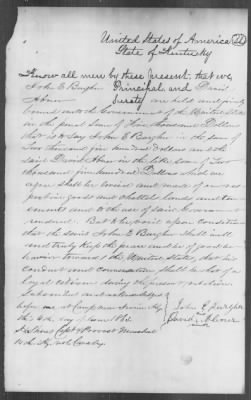 United States of America (22)
State of Kentucky
Know all men by these present: that we,
John E Burgher Principal and David
Abner Surety are held and firmly
bound unto the Government of the United States
in the penal sum of Dollars
that is to say John E Burgher in the sum
Two thousand five hundred Dollars and the
said David Abner in the like sum of two
thousand five hundred Dollars which we
agree shall be levied and made of our re
spective goods and chattels lands and ten
ements and to the use of said Govern
ment. But to be void upon condition
that the said John E Burgher shall well
and truly keep the peace and be of good be
havior towards the United States, that his
conduct and conversation shall be that of a
loyal citizen during the present rebellion.
Subscribed and acknowledged
before me at Camp Ky John E Burgher
this day of David Abner
Capt & Provost Marshal
Ky vol Cavalry